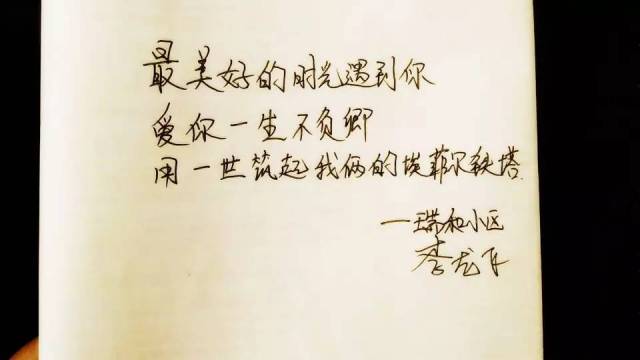 最美好的时光遇到你
爱你一生不负卿
用一世筑起我俩的埃菲尔铁塔
一瑞和小区
李龙飞